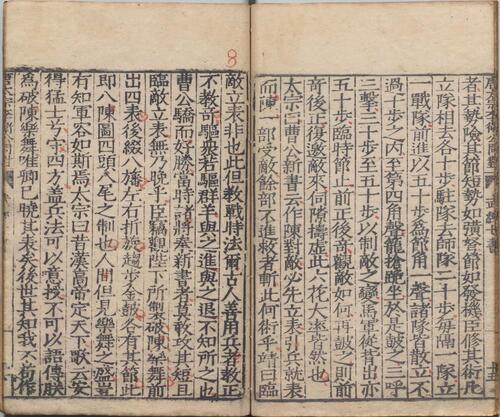 者其勢險其節短勢如彍弩節如發機臣修其術凡
立隊相去各十步駐隊去師隊二十步每隔一隊立
一戰隊前進以五十步為節角一聲諸隊皆散立不
過十步之內至第四角聲籠槍跪坐於是鼓之三呼
三擊三十步至五十步以制敵之變馬軍從背出亦
五十步臨時節止前正後奇觀敵如何再鼓之則前
奇後正復邀敵來伺隙擣虛此六花大率皆然也
太宗曰曹公新書云作陳對敵必先立表引兵就表
而陳一部受敵餘部不進救者斬此何術乎靖曰臨
8
敵立表非也此但教戰時法爾古人善用兵者教正
不教奇驅衆若驅群羊與之進與之退不知所之也
曹公驕而好勝當時諸將奉新書者莫敢攻其短且
臨敵立表無乃晚乎臣竊觀陛下所製破陳樂舞前
出四表後綴八旛左右折旋趨步金鼓各有其節此
即八陳圖四頭八尾之制也人間但見樂舞之盛豈
有知軍容如斯焉太宗曰昔漢高帝定天下歌云安
得猛士兮守四方蓋兵法可以意授不可以語傳朕
為破陳樂舞唯卿已曉其表矣後世其知我不苟作